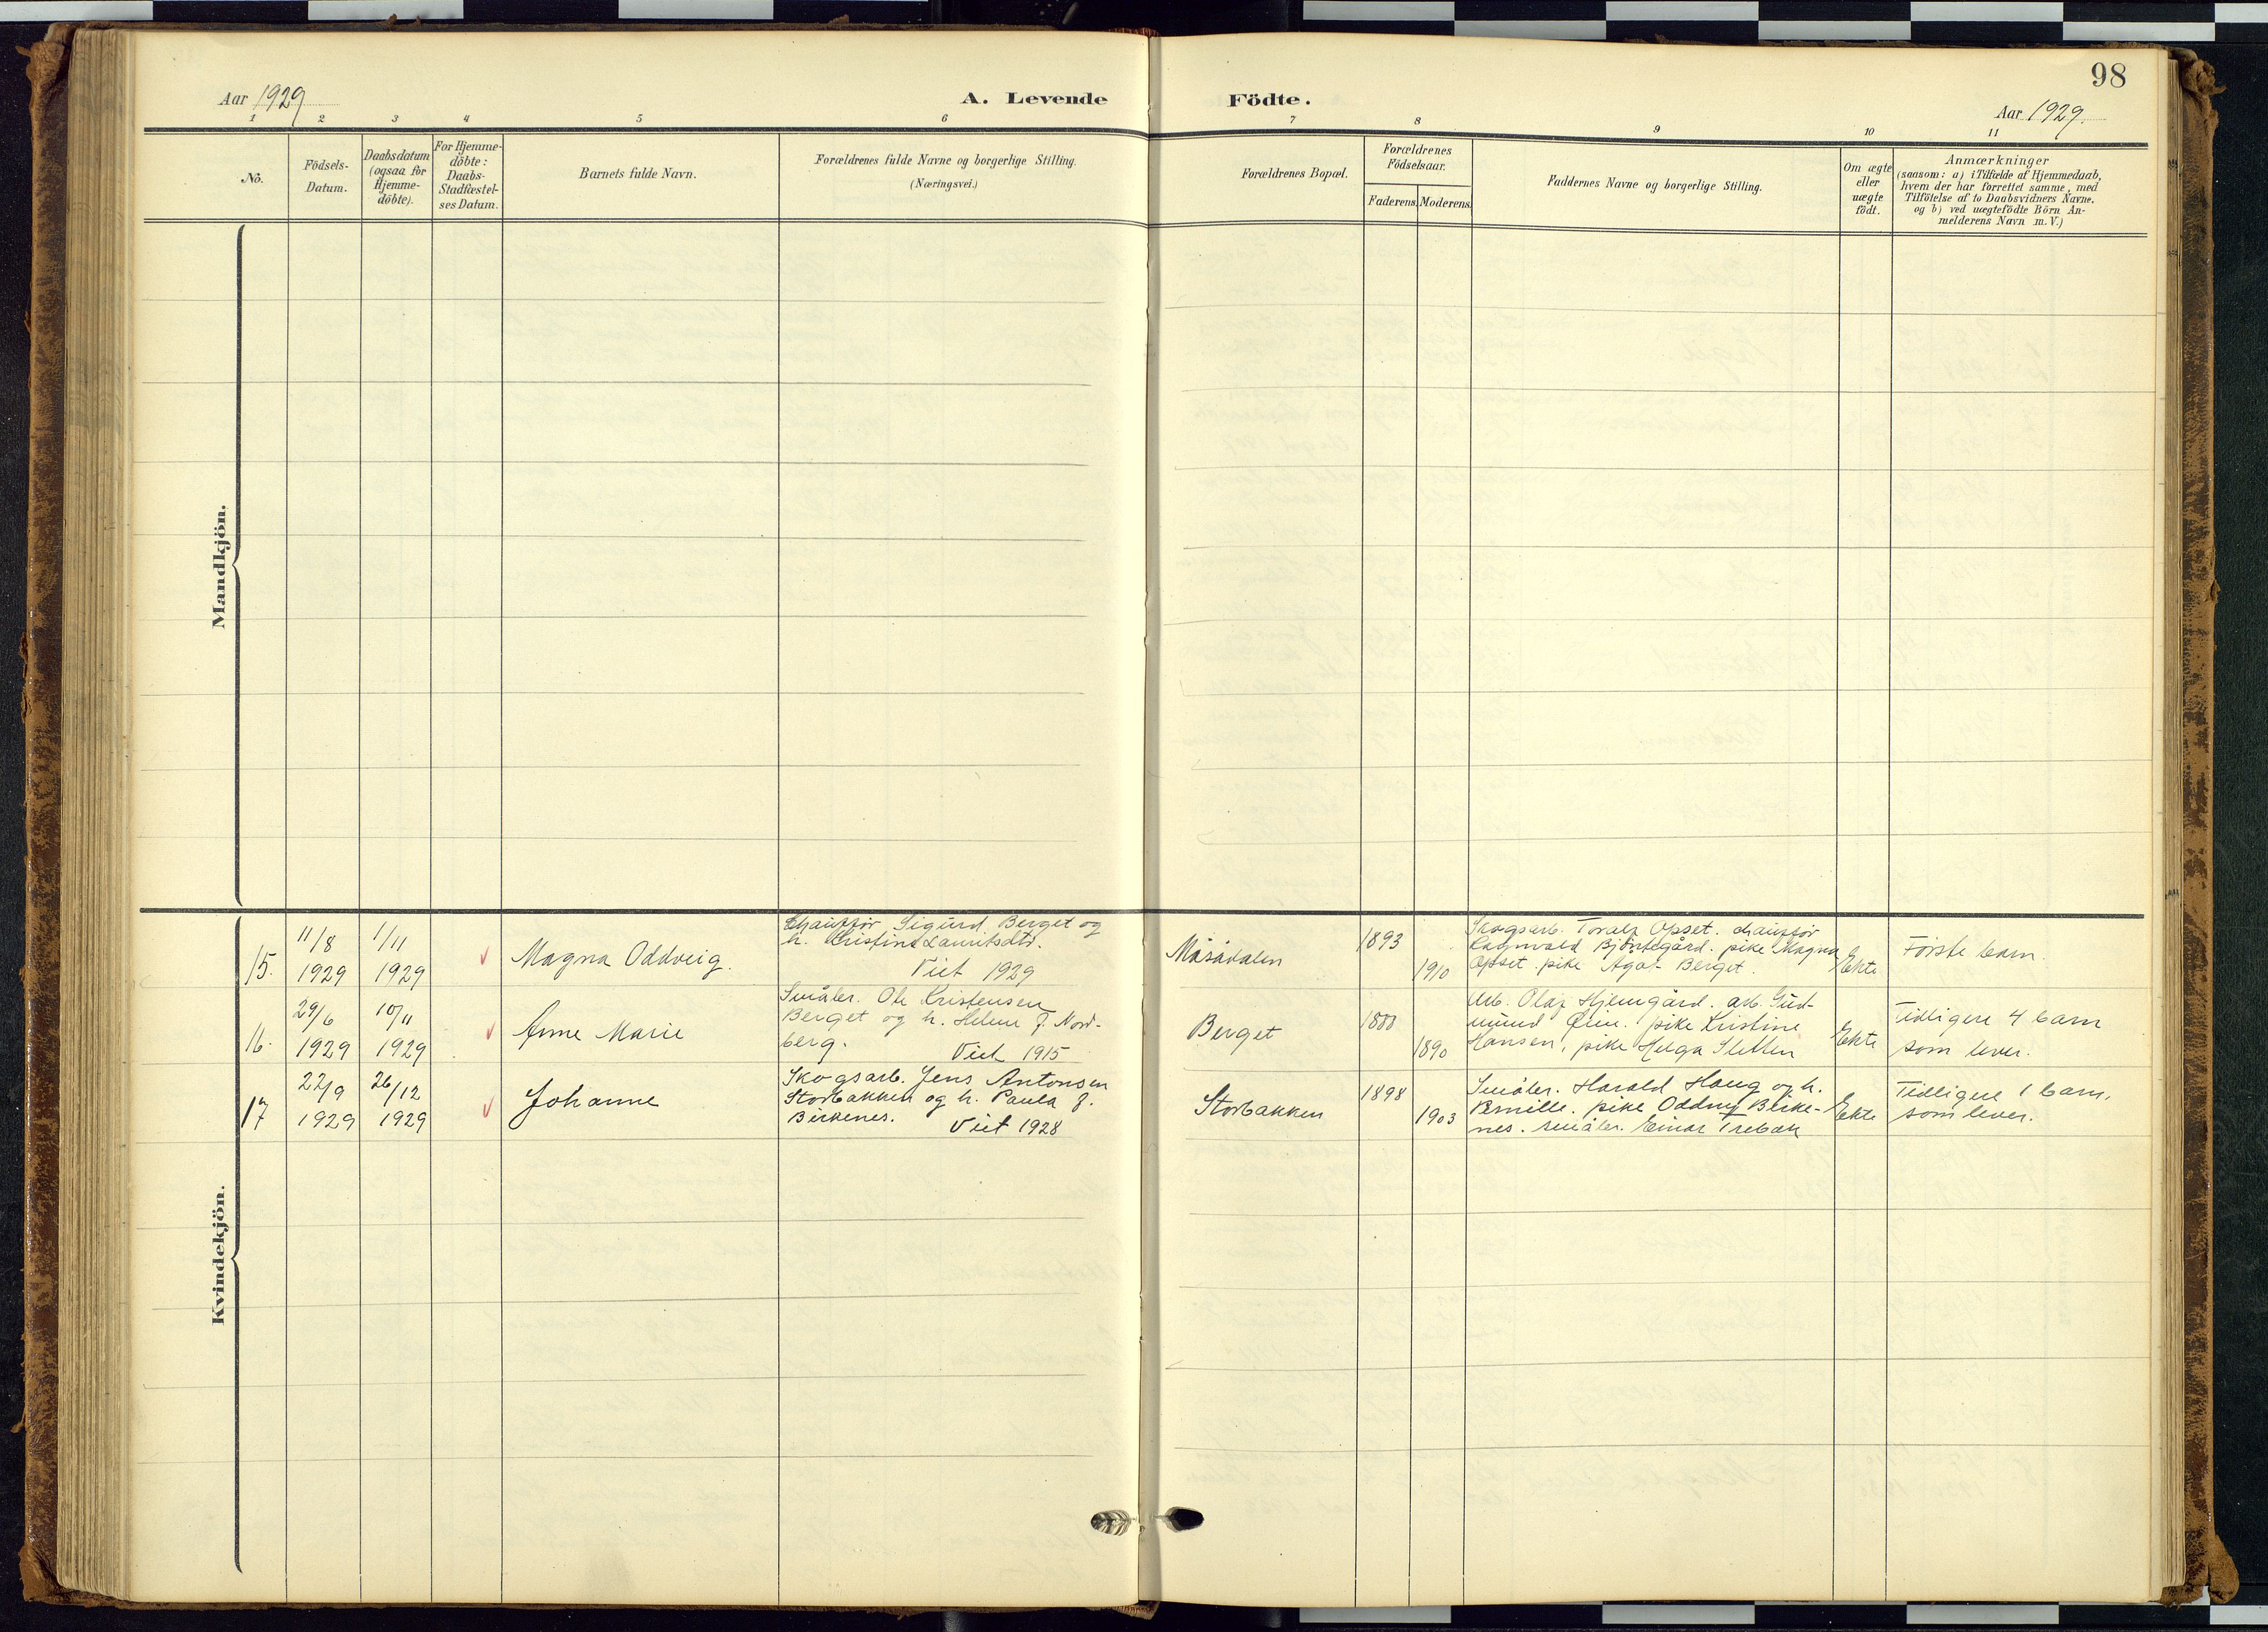 98
Aar 1929
A. Levende Födte.
Aar 1929.
1 2 3 4 5 6 7 8 9 10 11
No.
Födsels-
Datum.
Daabsdatum
(ogsaa for
Hjemme-
döbte).
For Hjemme-
döbte:
Daabs-
Stadfæstel-
ses Datum.
Barnets fulde Navn.
Forældrenes fulde Navne og borgerlige Stilling.
(Næringsvei.)
Forældrenes Bopæl.
Forældrenes
Födselsaar.
Faderens. Moderens.
Faddernes Navne og borgerlige Stilling.
Om ægte
eller
uægte
födt.
Anmærkninger
(saasom: a) i Tilfælde af Hjemmedaab,
hvem der har forrettet samme, med
Tilföielse af to Daabsvidners Navne.
og b) ved uægtefödte Börn An-
melderens Navn m. V.)
Mandkjön.
Kvindekjön.
15.
11/8
1929
1/11
1929
Magna Oddveig.
Chauffør Sigurd Berget og
h. Kristine Lauritsdtr.
Viet 1929
Måsådalen
1893
1910
Skogsarb. Toralf Opset. chauffør
Ragnvald Bjørtegård. pike Magna
Opset. pike Ågot Berget.
Ekte
Første barn.
16.
29/6
1929
10/11
1929
Anne Marie
Småbr. Ole Kristensen
Berget og h. Helene f. Nord-
berg.
Viet 1915
Berget
1890
Arb. Olaf Hjemgård. arb. Gud-
mund pike Kristine
Hansen, pike Helga Sletten
Ekte
Tidligere 4 barn
som lever.
17
22/9
1929
26/12
1929
Johanne
Skogsarb. Jens Antonsen
Storbakken og h. Paula f.
Birkenes.
Viet 1928
Storbakken
1898
1903
Småbr. Harald Haug og h.
Pernille. pike Oddny Birke-
nes. småbr. Einar Trebak
Ekte
Tidligere 1 barn,
som lever.